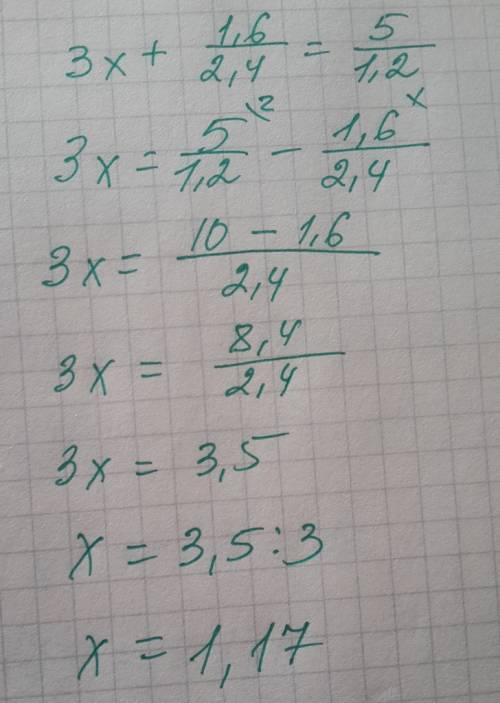 3x + 1,6/2,4 = 5/1,2
3x = 5\2/1,2 - 1,6x/2,4
3x = 10 - 1,6/2,4
3x = 8,4/2,4
3x = 3,5
x = 3,5 : 3
x = 1,17